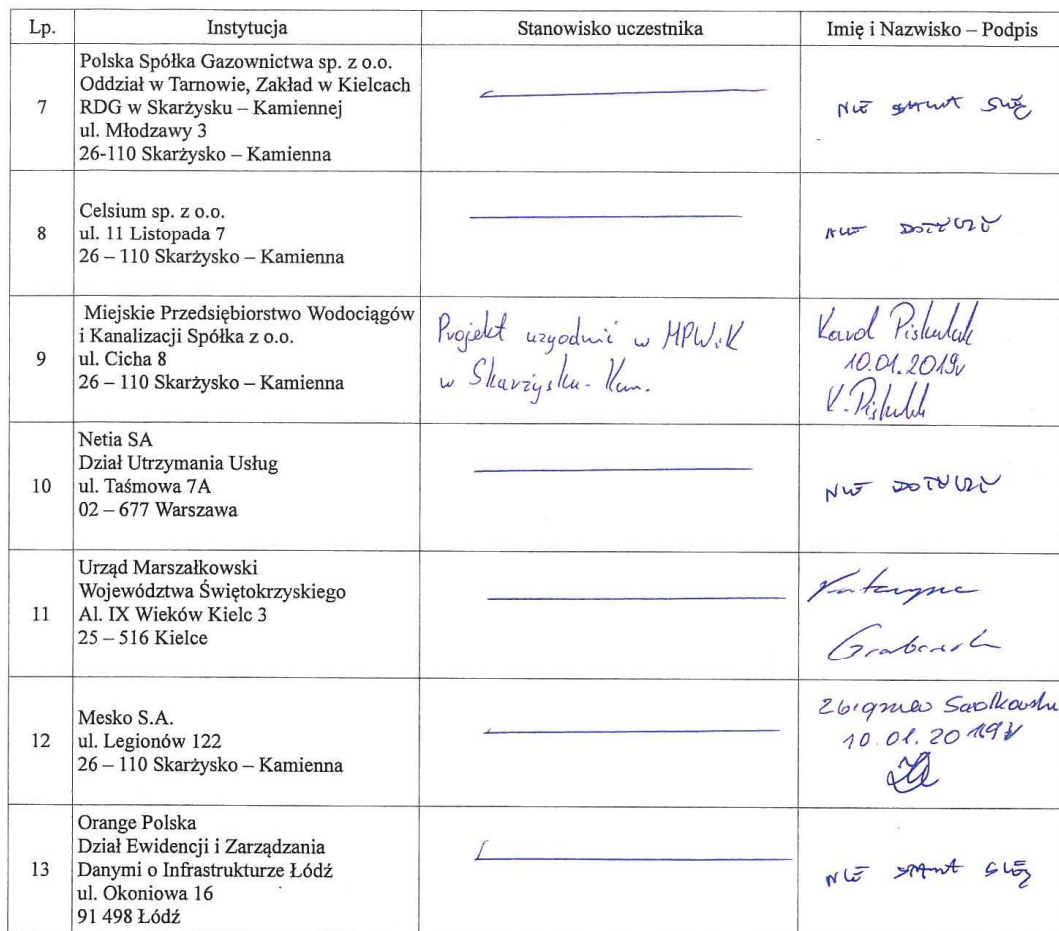 Lp. Instytucja Stanowisko uczestnika Imię i Nazwisko – Podpis
7
Polska Spółka Gazownictwa sp. z o.o.
Oddział w Tarnowie, Zakład w Kielcach
RDG w Skarżysku – Kamiennej
ul. Młodzawy 3
26-110 Skarżysko – Kamienna
NIE STAWIŁ SIĘ
8
Celsium sp. z o.o.
ul. 11 Listopada 7
26 – 110 Skarżysko – Kamienna
NIE DOTYCZY
9
Miejskie Przedsiębiorstwo Wodociągów
i Kanalizacji Spółka z o.o.
ul. Cicha 8
26 – 110 Skarżysko – Kamienna
Projekt uzgodnić w MPWiK
w Skarżysku-Kam.
Karol
10.01.2019r
10
Netia SA
Dział Utrzymania Usług
ul. Taśmowa 7A
02 – 677 Warszawa
NIE DOTYCZY
11
Urząd Marszałkowski
Województwa Świętokrzyskiego
Al. IX Wieków Kielc 3
25 – 516 Kielce
Katarzyna
12
Mesko S.A.
ul. Legionów 122
26 – 110 Skarżysko – Kamienna
Zbigniew
10.01.2019r
13
Orange Polska
Dział Ewidencji i Zarządzania
Danymi o Infrastrukturze Łódź
ul. Okoniowa 16
91 498 Łódź
NIE STAWIŁ SIĘ